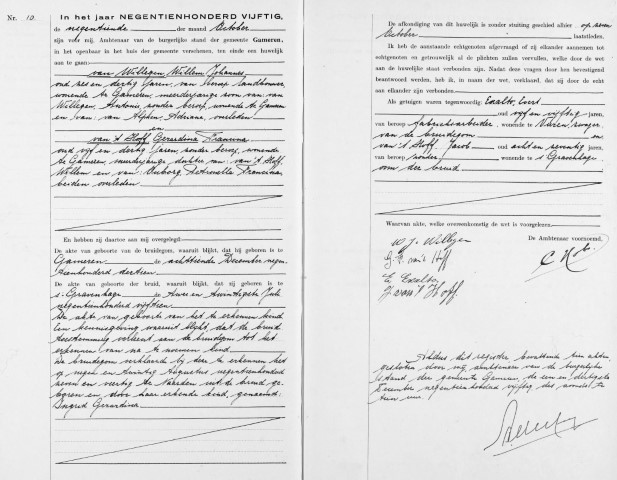 Nr. 10.
In het jaar NEGENTIENHONDERD VIJFTIG,
de negentiende der maand October
zijn voor mij, Ambtenaar van de burgerlijke stand der gemeente Gameren,
in het openbaar in het huis der gemeente verschenen, ten einde een huwelijk
aan te gaan:
van Willegen, Willem Johannes,
oud zes en dertig jaren, van beroep landbouwer,
wonende te Gameren, meerderjarige zoon van: van
Willegen, Antonie, zonder beroep, wonende te Gameren
en van: van Alphen, Adriana, overleden
en
van 't Hoff, Gerardina Francina
oud vijf en dertig jaren, zonder beroep, wonende
te Gameren, meerderjarige dochter van: van 't Hoff,
Willem en van: Petronella Francina
beiden overleden
En hebben zij daartoe aan mij overgelegd:
De akte van geboorte van de bruidegom, waaruit blijkt, dat hij geboren is te
Gameren de achttiende December negen-
tienhonderd dertien
De akte van geboorte der bruid, waaruit blijkt, dat zij geboren is te
's-Gravenhage de twee en twintigste Juli
negentienhonderd vijftien
De akte van geboorte van het te erkennen kind
Een kennisgeving waaruit blijkt, dat de bruid
toestemming verleent aan de bruidegom tot het
erkennen van na te noemen kind
De bruidegom verklaard bij deze te erkennen het
op negen en twintig Augustus negentienhonderd
zeven en veertig te Naarden uit de bruid ge-
boren en door haar erkende kind, genaamd:
Ingrid Gerardina
De afkondiging van dit huwelijk is zonder stuiting geschied alhier op
October laatstleden.
Ik heb de aanstaande echtgenoten afgevraagd of zij elkander aannemen tot
echtgenoten en getrouwelijk al de plichten zullen vervullen, welke door de wet
aan de huwelijke staat verbonden zijn. Nadat deze vragen door hen bevestigend
beantwoord werden, heb ik, in naam der wet, verklaard, dat zij door de echt
aan elkander zijn verbonden.
Als getuigen waren tegenwoordig: Exalto, Evert
oud vijf en vijftig jaren,
van beroep fabrieksarbeider, wonende te Vuren, zwager
van de bruidegom en
van 't Hoff, Jacob oud acht en zeventig jaren,
van beroep zonder, wonende te 's Gravenhage
oom der bruid.
Waarvan akte, welke overeenkomstig de wet is voorgelezen.
De Ambtenaar voornoemd,
W. J. Willegen
G. F. van 't Hoff
E. Exalto
J van 't Hoff.
Aldus dit register bevattende tien akten
gesloten door mij, ambtenaar van de burgerlijke
stand der gemeente Gameren, de een en dertigste
December negentienhonderd vijftig des avonds te
tien ure.